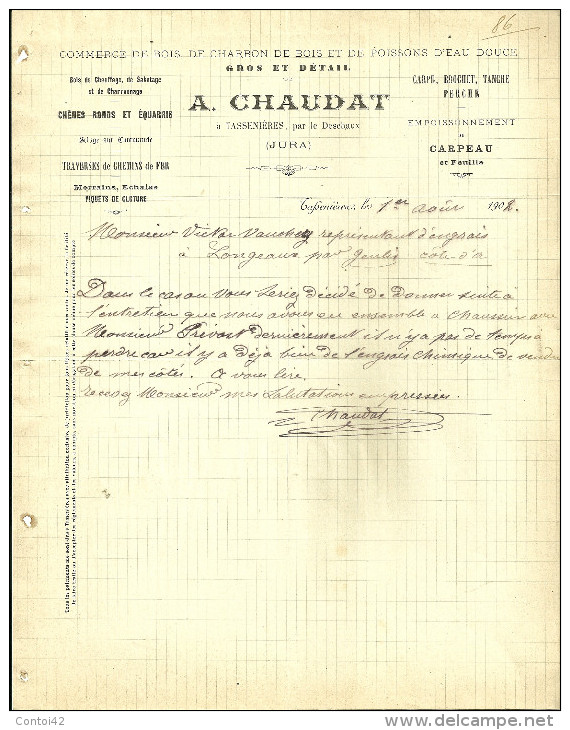 86
COMMERCE DE BOIS, DE CHARBON DE BOIS ET DE POISSONS D'EAU DOUCE
GROS ET DÉTAIL
Bois de Chauffage, de Sabotage
et de Charronnage
CHÊNES RONDS ET ÉQUARRIS
Sciage sur Commande
TRAVERSES de CHEMINS de FER
Merrains, Echalas
PIQUETS DE CLOTURE
A. CHAUDAT
à TASSENIÈRES, par le Deschaux
(JURA)
CARPE, BROCHET, TANCHE
PERCHE
EMPOISSONNEMENT
DE
CARPEAU
et Feuille
Tassenières, le 1er août 1902.
Monsieur Victor Vauchey représentant d'engrais
à Longeaux par Genlis cote d'or
Dans le cas ou vous seriez décidé de donner suite à
l'entretien que nous avons eu ensemble à Chaussin avec
Monsieur Prévost dernièrement il n'y a pas de temps a
perdre car il y a déjà bien de l'engrais chimique de vendu
de mes cotés. A vous lire.
recevez Monsieur mes Salutations empressées.
Chaudat
Contoi42
www.delcampe.net